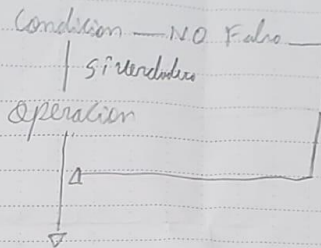 Condicion — NO Falso —
si verdadero
Operacion